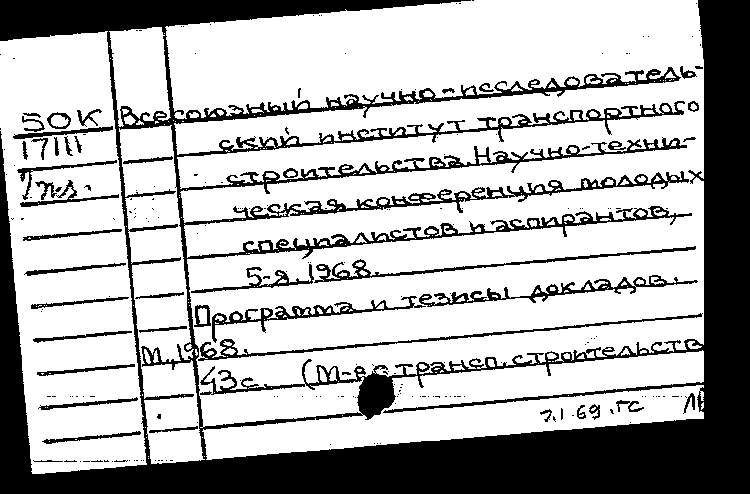 50К Всесоюзный научно-исследователь-
17111 ский институт транспортного
строительства. Научно-техни-
ческая конференция молодых
специалистов и аспирантов,
5-я. 1968.
Программа и тезисы докладов.
М., 1968.
43с. (М-во трансп. строительств
7.1.69.ГС